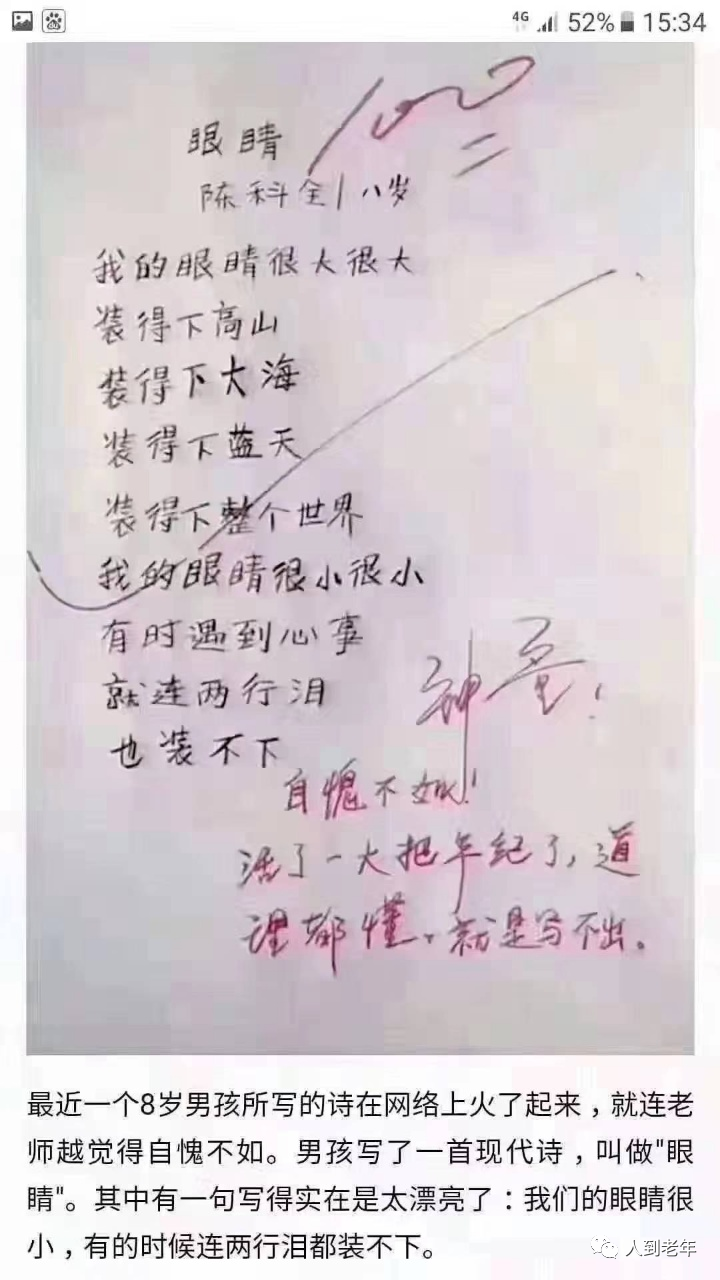 4G 52% 15:34
100
眼睛
陈科全 八岁
我的眼睛很大很大
装得下高山
装得下大海
装得下蓝天
装得下整个世界
我的眼睛很小很小
有时遇到心事
就连两行泪
也装不下
神童!
自愧不如!
活了一大把年纪了,道
理都懂,就是写不出。
最近一个8岁男孩所写的诗在网络上火了起来，就连老
师越觉得自愧不如。男孩写了一首现代诗，叫做"眼
睛"。其中有一句写得实在是太漂亮了：我们的眼睛很
小，有的时候连两行泪都装不下。
人到老年